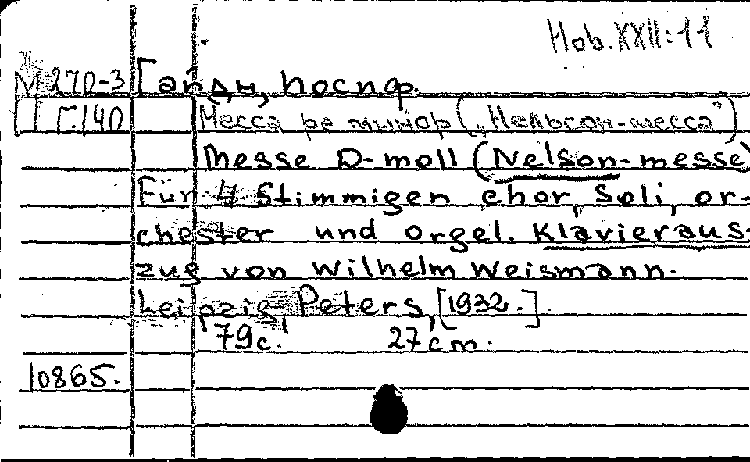 Hob. XXII:11
М 270-3 Гайдн, Иосиф.
Г140 Месса ре минор („Нельсон-месса")
Messe D-moll (Nelson-messe)
Für 4 Stimmigen chor, Soli, or-
chester und orgel. Klavieraus-
zug von Wilhelm Weismann.
Leipzig, Peters, [1932.].
79с. 27cm.
10865.